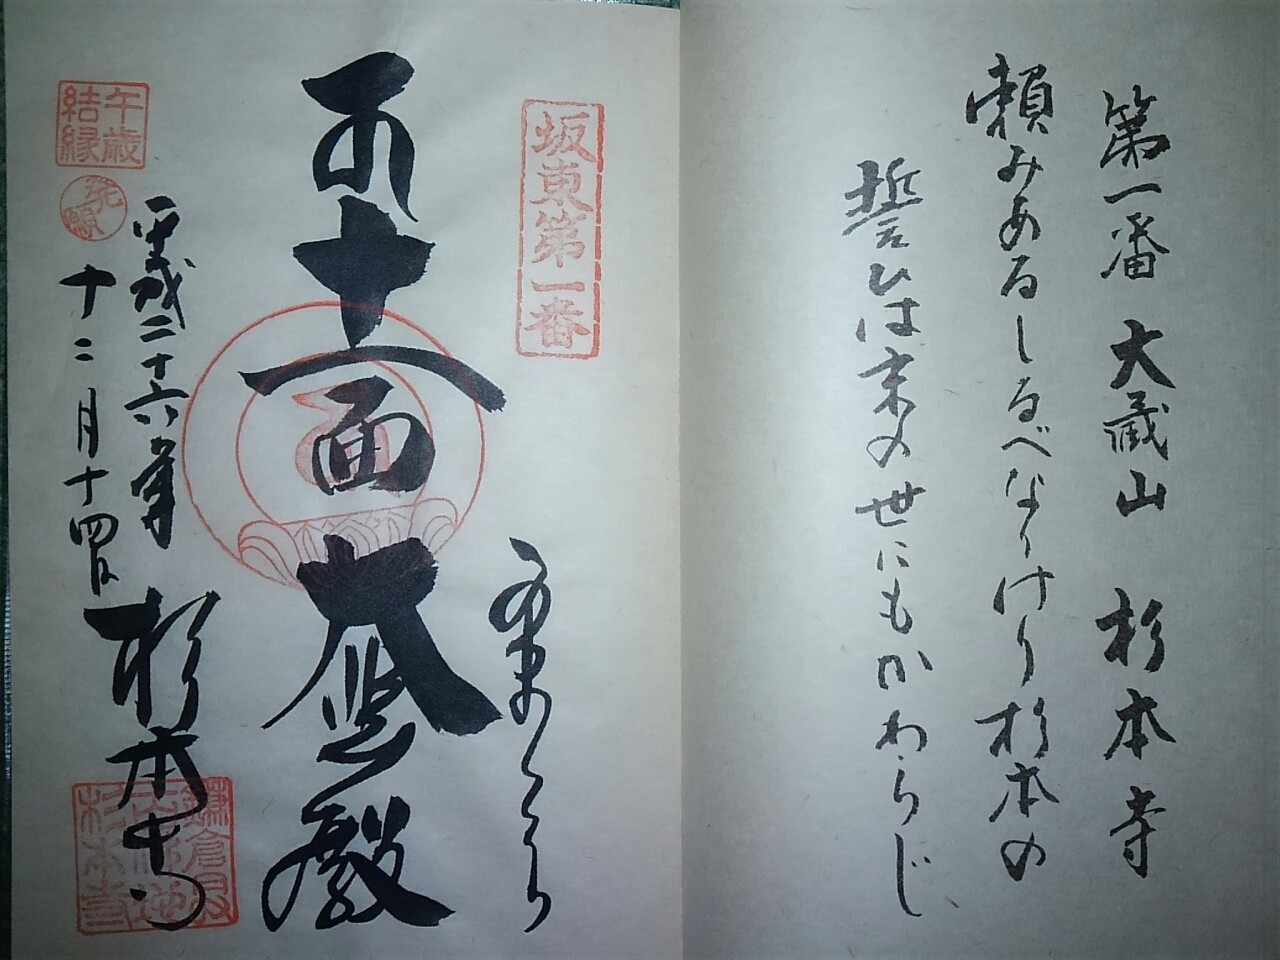 第一番 大蔵山 杉本寺
頼みあるしるべなりけり杉本の
誓ひは末の世にもかわらじ
坂東第一番
十一面大悲殿
午歳
結縁
発願
平成二十六年
十二月十四日
杉本寺